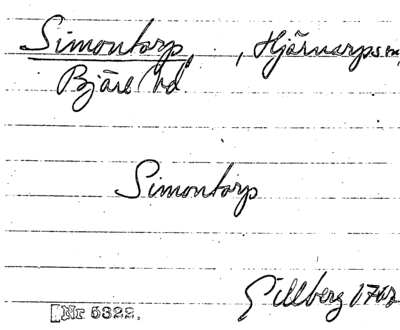 Simontorp, , Hjärnarps sn,
Bjäre hd
Simontorp
Gillberg 1767
Nr 5322.